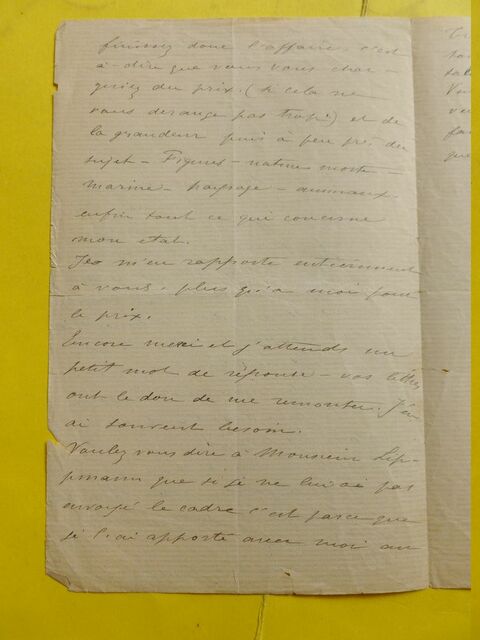 finissez donc l'affaire, c'est
à-dire que vous vous char-
giez du prix. (si cela ne
vous derange pas trop!) et de
la grandeur puis à peu près du
sujet - Figures - nature morte -
marine - paysage - animaux
enfin tout ce qui concerne
mon etat.
Je m'en rapporte entièrement
à vous, plus qu'a moi pour
le prix.
Encore merci et j'attends un
petit mot de réponse - vos lettres
ont le don de me remonter. J'en
ai souvent besoin.
Voulez vous dire à Monsieur Lip-
pmann que si je ne lui ai pas
envoyé le cadre c'est parce que
je l'ai apporté avec moi au